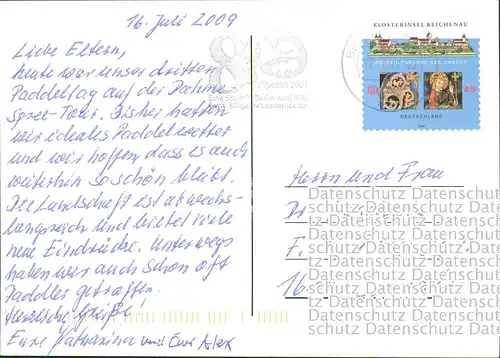 16. Juli 2009
Liebe Eltern,
heute war unser dritter
Paddeltag auf der Dahme
Spree-Tour. Bisher hatten
wir ideales Paddelwetter
und wir hoffen, dass es auch
weiterhin so schön bleibt.
Die Landschaft ist abwechs-
lungsreich und bietet viele
neue Eindrücke. Unterwegs
haben wir auch schon oft
Paddler getroffen.
Herzliche Grüße!
Eure Katharina und Euer Alex
KLOSTERINSEL REICHENAU
45
DEUTSCHLAND
Herrn und Frau
Datenschutz Datenschutz
Datenschutz Datenschutz
Datenschutz Datenschutz
Datenschutz Datenschutz
F.
Datenschutz Datenschutz
Datenschutz Datenschutz
16
Datenschutz Datenschutz
Datenschutz Datenschutz